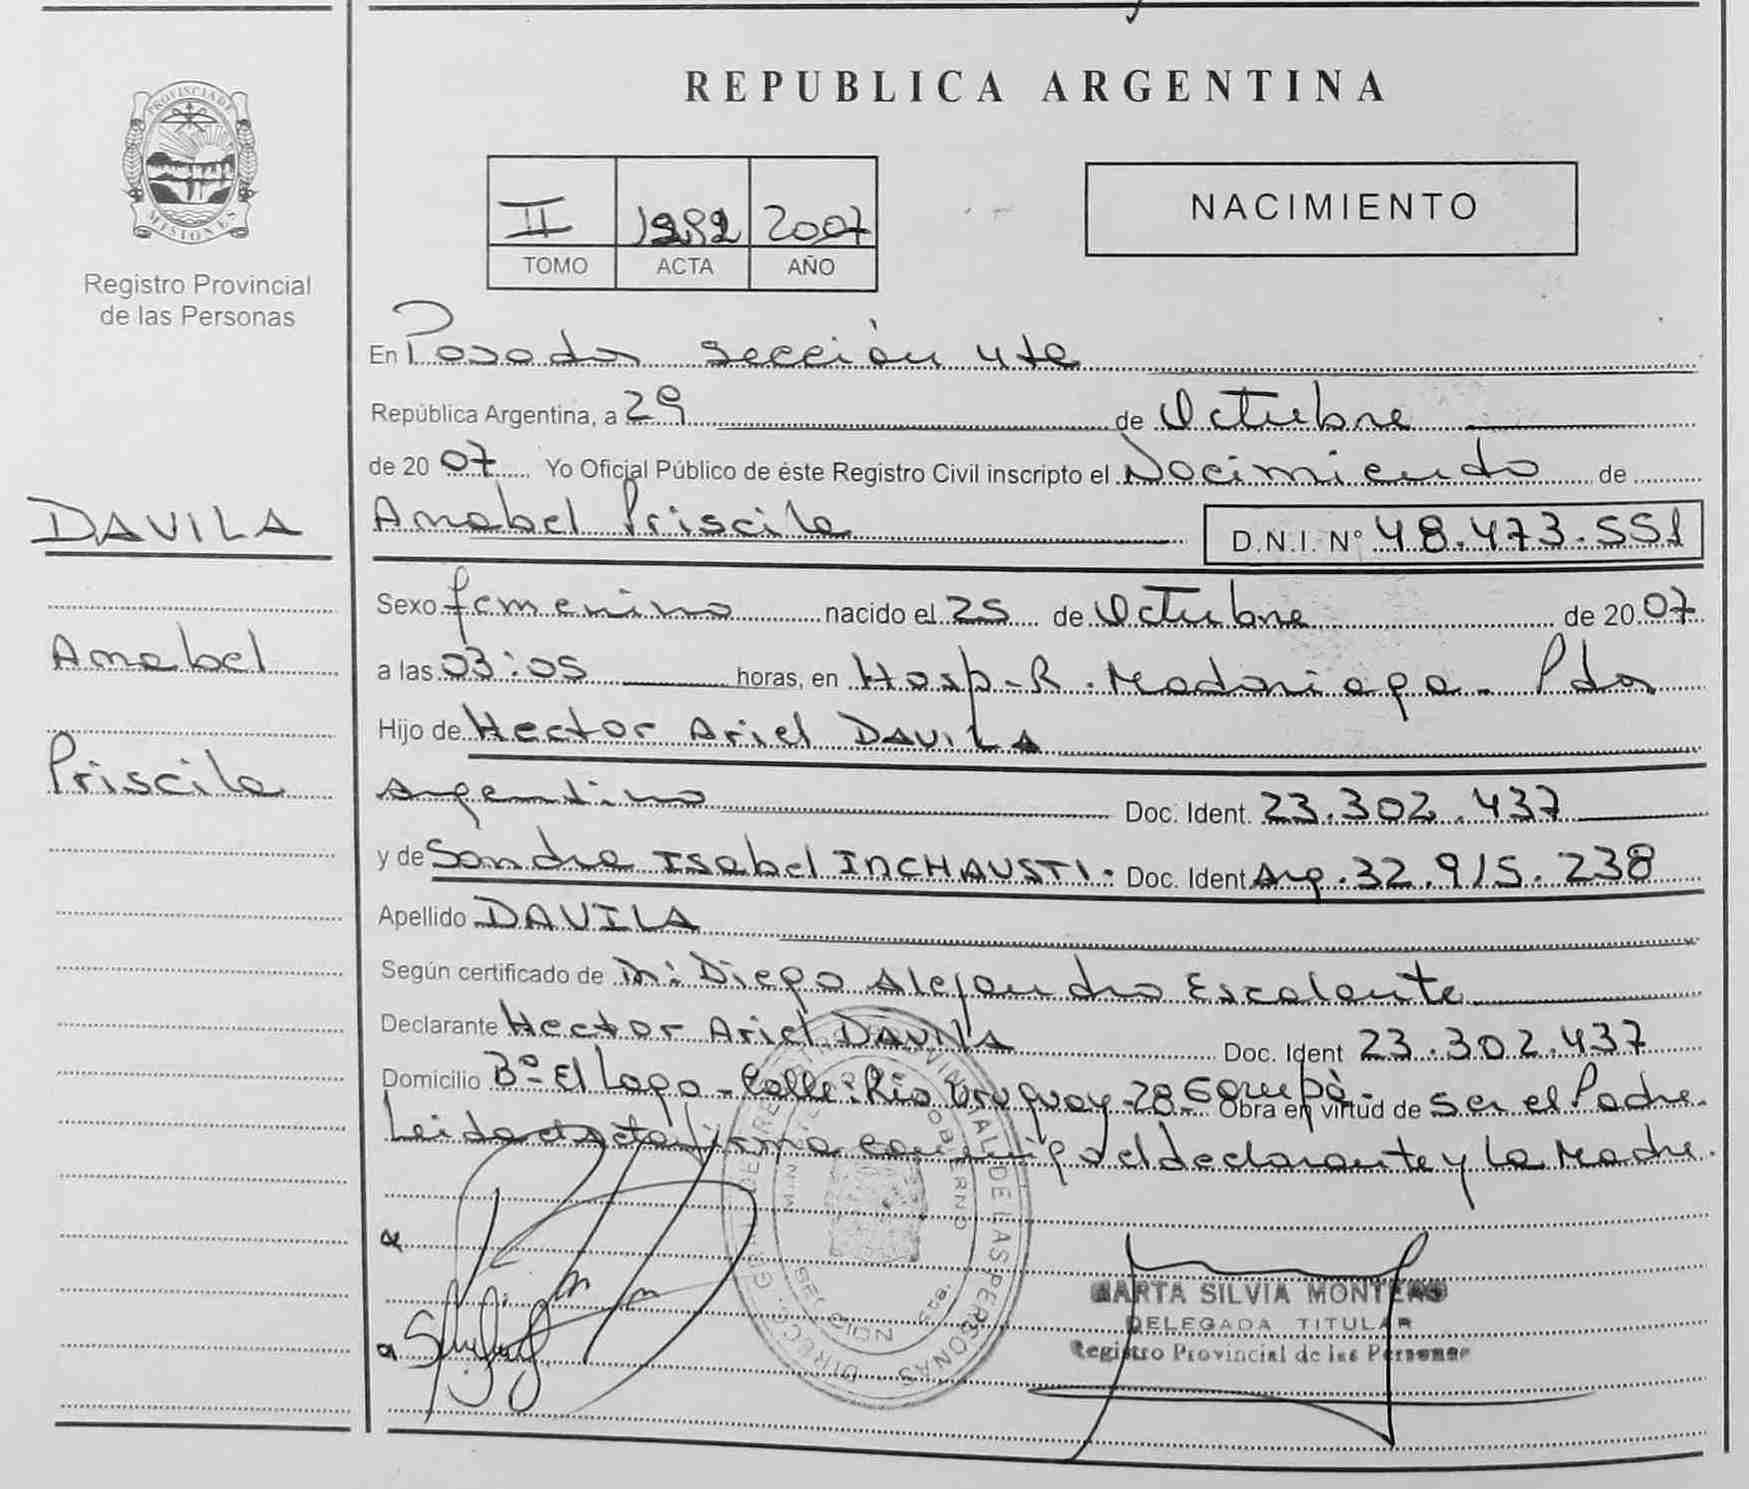 REPUBLICA ARGENTINA
PROVINCIA DE
MISIONES
Registro Provincial
de las Personas
II 2007
TOMO ACTA AÑO
NACIMIENTO
En Posadas sección 4ta
República Argentina, a 29 de Octubre
de 2007 Yo Oficial Público de éste Registro Civil inscripto el Nacimiento de
DAVILA
Anabel Priscila D.N.I. Nº 48.473.551
Sexo femenino nacido el 25 de Octubre de 2007
Anabel
a las 03:05 horas, en Hosp. R. Madariaga - Pdas
Hijo de Hector Ariel DAVILA
Priscila
Argentino Doc. Ident. 23.302.437
y de Sandra Isabel INCHAUSTI. Doc. Ident Arg. 32.915.238
Apellido DAVILA
Según certificado de Dr: Diego Alejandro Escalante
Declarante Hector Ariel DAVILA Doc. Ident 23.302.437
Domicilio Bº El Lago - Calle: Rio Uruguay - 28 - Garupá. Obra en virtud de ser el Padre.
Leida el acta firma conmigo el declarante y la Madre.
MARTA SILVIA MONTERO
DELEGADA TITULAR
Registro Provincial de las Personas